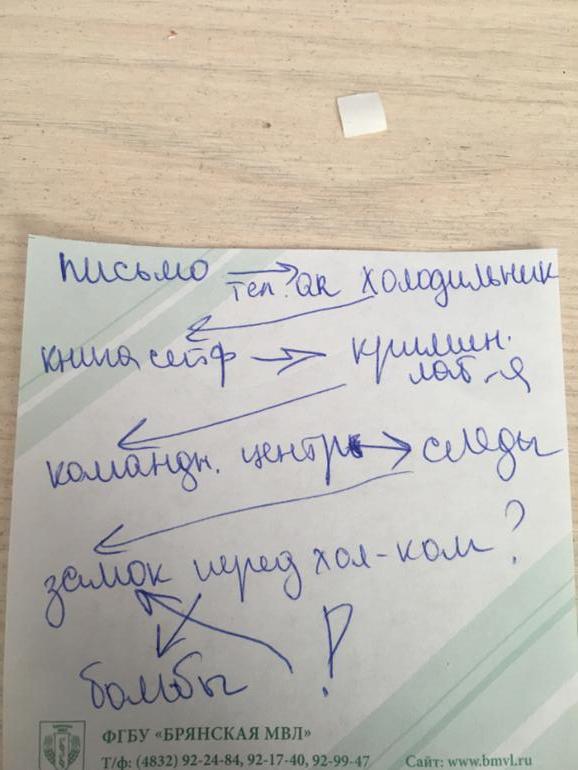 письмо → тел. ак холодильник
книга, сейф → кримин.
лаб-я
командн. центр → следы
замок перед хол-ком?
бомбы !
ФГБУ «БРЯНСКАЯ МВЛ»
Т/ф: (4832) 92-24-84, 92-17-40, 92-99-47 Сайт: www.bmvl.ru